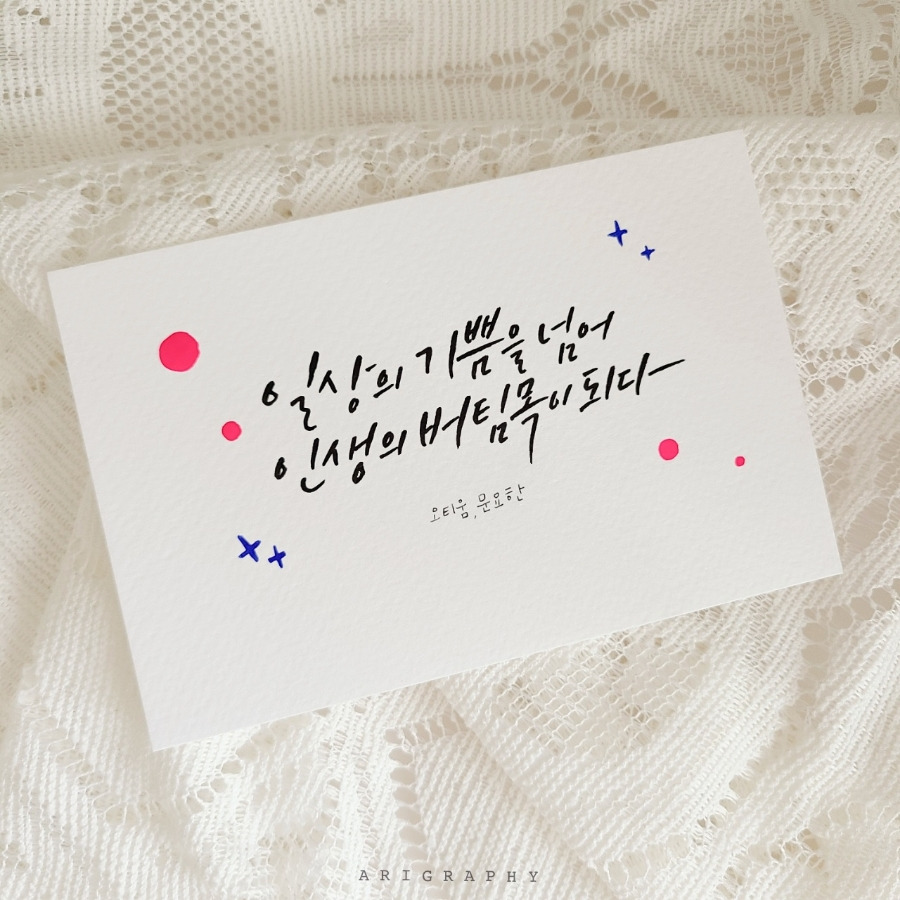 일상의 기쁨을 넘어
인생의 버팀목이 되다
오티움, 문요한
ARIGRAPHY